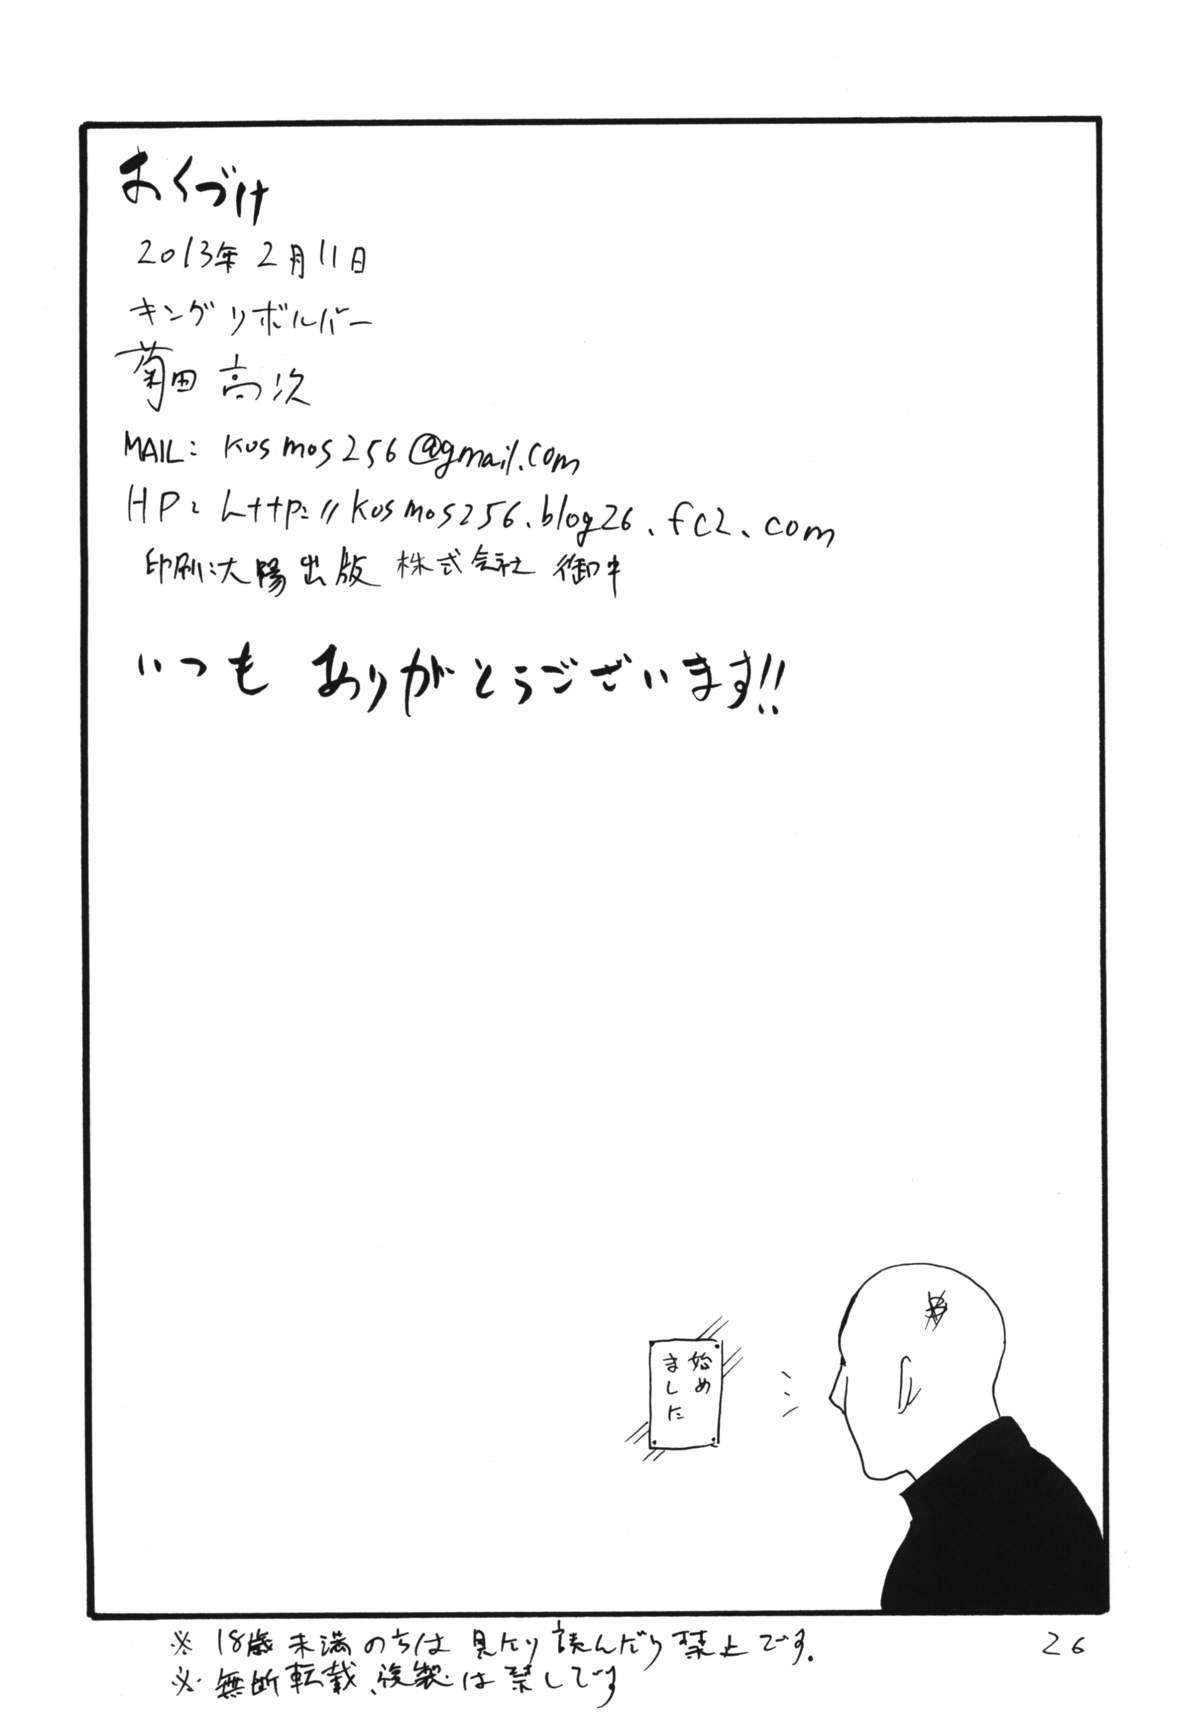 おくづけ
2013年2月11日
キングリボルバー
菊田高次
MAIL: kosmos256@gmail.com
HP: http://kosmos256.blog26.fc2.com
印刷:大陽出版 株式会社 御中
いつも ありがとうございます!!
始め
ました
※ 18歳未満のちは 見たり読んだり禁止です.
※ 無断転載、複製は禁しです
26